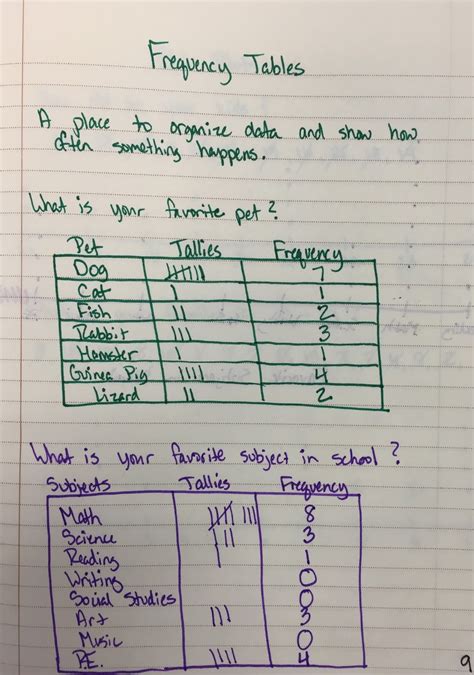 Frequency Tables
A place to organize data and show how
often something happens.
What is your favorite pet?
Pet Tallies Frequency
Dog 𝍸 II 7
Cat I 1
Fish II 2
Rabbit III 3
Hamster I 1
Guinea Pig IIII 4
Lizard II 2
What is your favorite subject in school?
Subjects Tallies Frequency
Math 𝍸 III 8
Science III 3
Reading I 1
Writing 0
Social Studies 0
Art III 3
Music 0
P.E. IIII 4
9